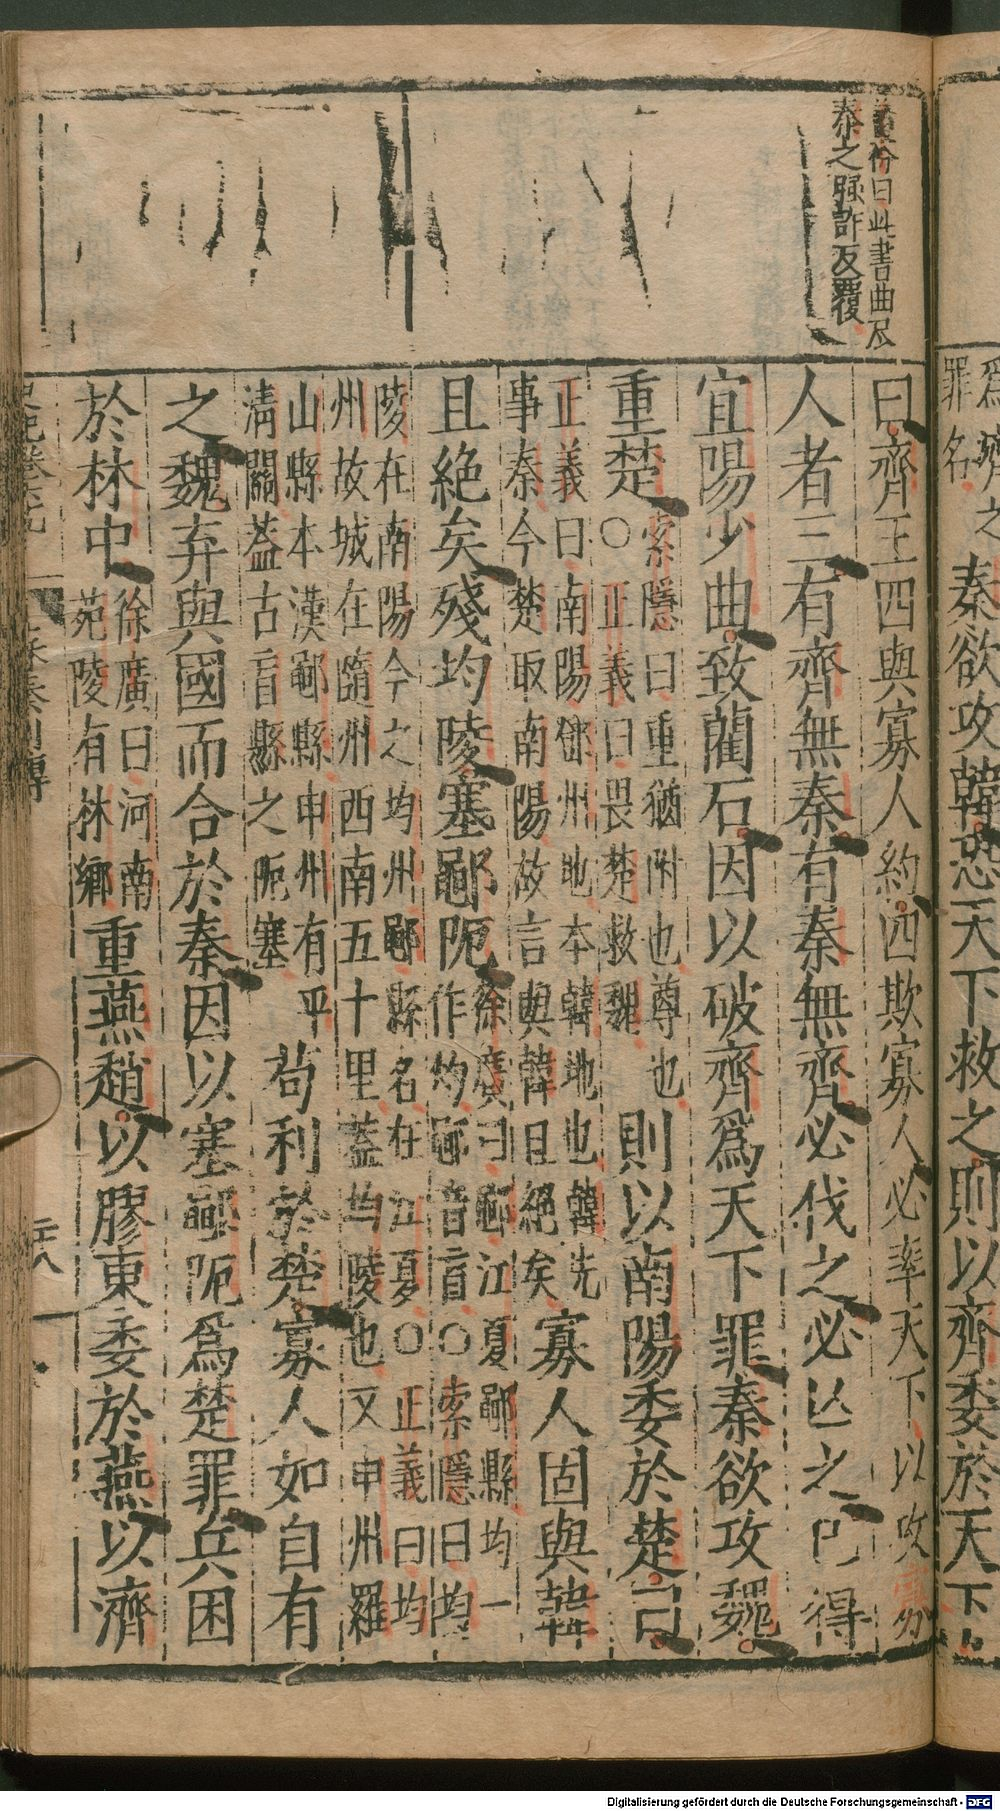 爲齊之
罪名
秦欲攻韓恐天下救之則以齊委於天下
曰齊王四與寡人約四欺寡人必率天下以攻寡
人者三有齊無秦有秦無齊必伐之必亾之已得
宜陽少曲致藺石因以破齊爲天下罪秦欲攻魏
重楚
索隱曰重猶附也尊也
○正義曰畏楚救魏
則以南陽委於楚曰
正義曰南陽鄧州地本韓地也韓先
事秦今楚取南陽故言與韓且絕矣
寡人固與韓
且絕矣殘均陵塞鄳阨
徐廣曰鄳江夏鄳縣均一
作灼鄳音盲○索隱曰均
陵在南陽今之均州鄳縣名在江夏○正義曰均
州故城在隨州西南五十里蓋均陵也又申州羅
山縣本漢鄳縣申州有平
淸關蓋古盲縣之阨塞
茍利於楚寡人如自有
之魏弃與國而合於秦因以塞鄳阨爲楚罪兵困
於林中
徐廣曰河南
苑陵有林鄉
重燕趙以膠東委於燕以濟
曰此書曲尽
秦之強詐反覆
蘇秦列傳
二八
Digitalisierung gefördert durch die Deutsche Forschungsgemeinschaft - DFG